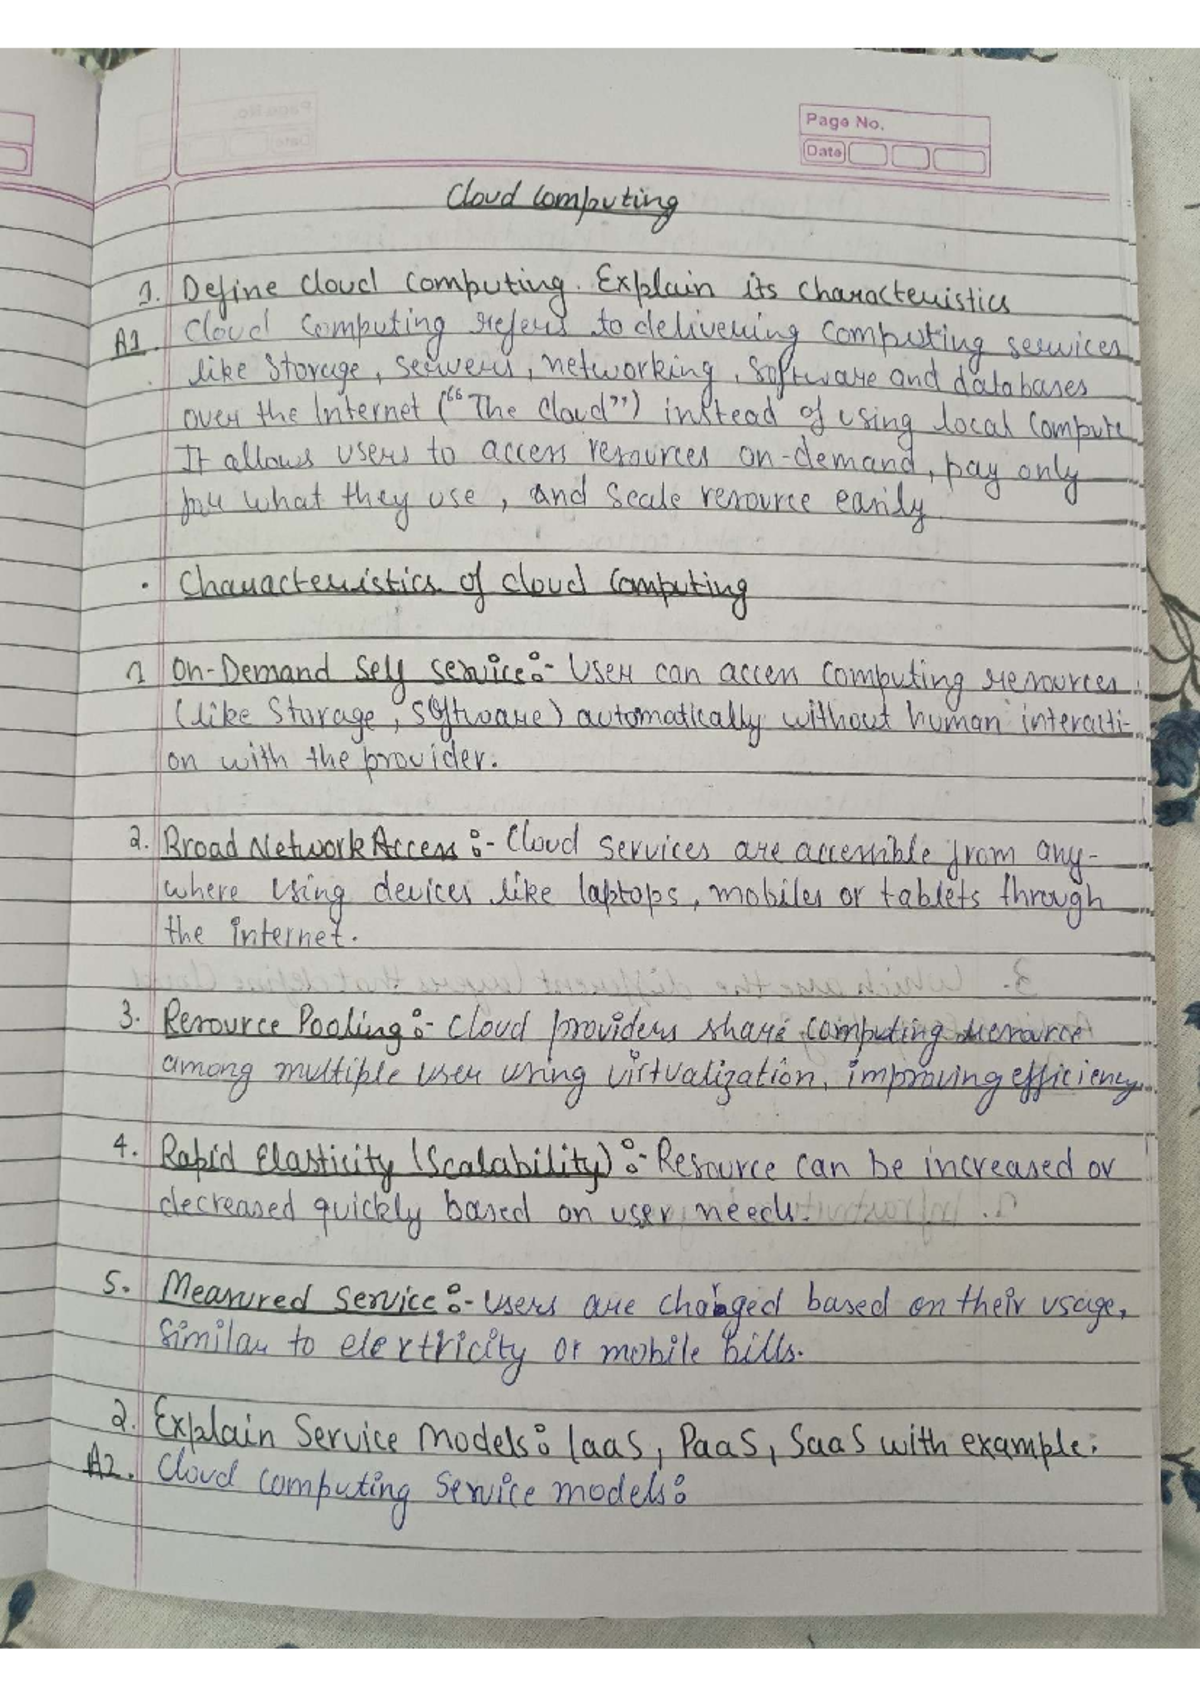 Page No.
Date
Cloud Computing
1. Define Cloud Computing. Explain its characteristics
A1. Cloud Computing refers to delivering computing services
like Storage, servers, networking, Software and databases
over the Internet ("The Cloud") instead of using local Compute
It allows users to access resources on-demand, pay only
for what they use, and Scale resource easily
. Characteristics of cloud Computing
1 On-Demand Self service:- User can access Computing resources
(like Storage, Software) automatically without human interacti-
on with the provider.
2. Broad Network Access:- Cloud services are accessible from any-
where using devices like laptops, mobiles or tablets through
the internet.
3. Resource Pooling:- Cloud providers share computing resource
among multiple user using virtualization, improving efficiency
4. Rapid Elasticity (Scalability):- Resource can be increased or
decreased quickly based on user needs.
5. Measured Service:- Users are charged based on their usage,
Similar to electricity or mobile bills.
2. Explain Service Models: IaaS, PaaS, SaaS with example.
A2. Cloud Computing Service models: